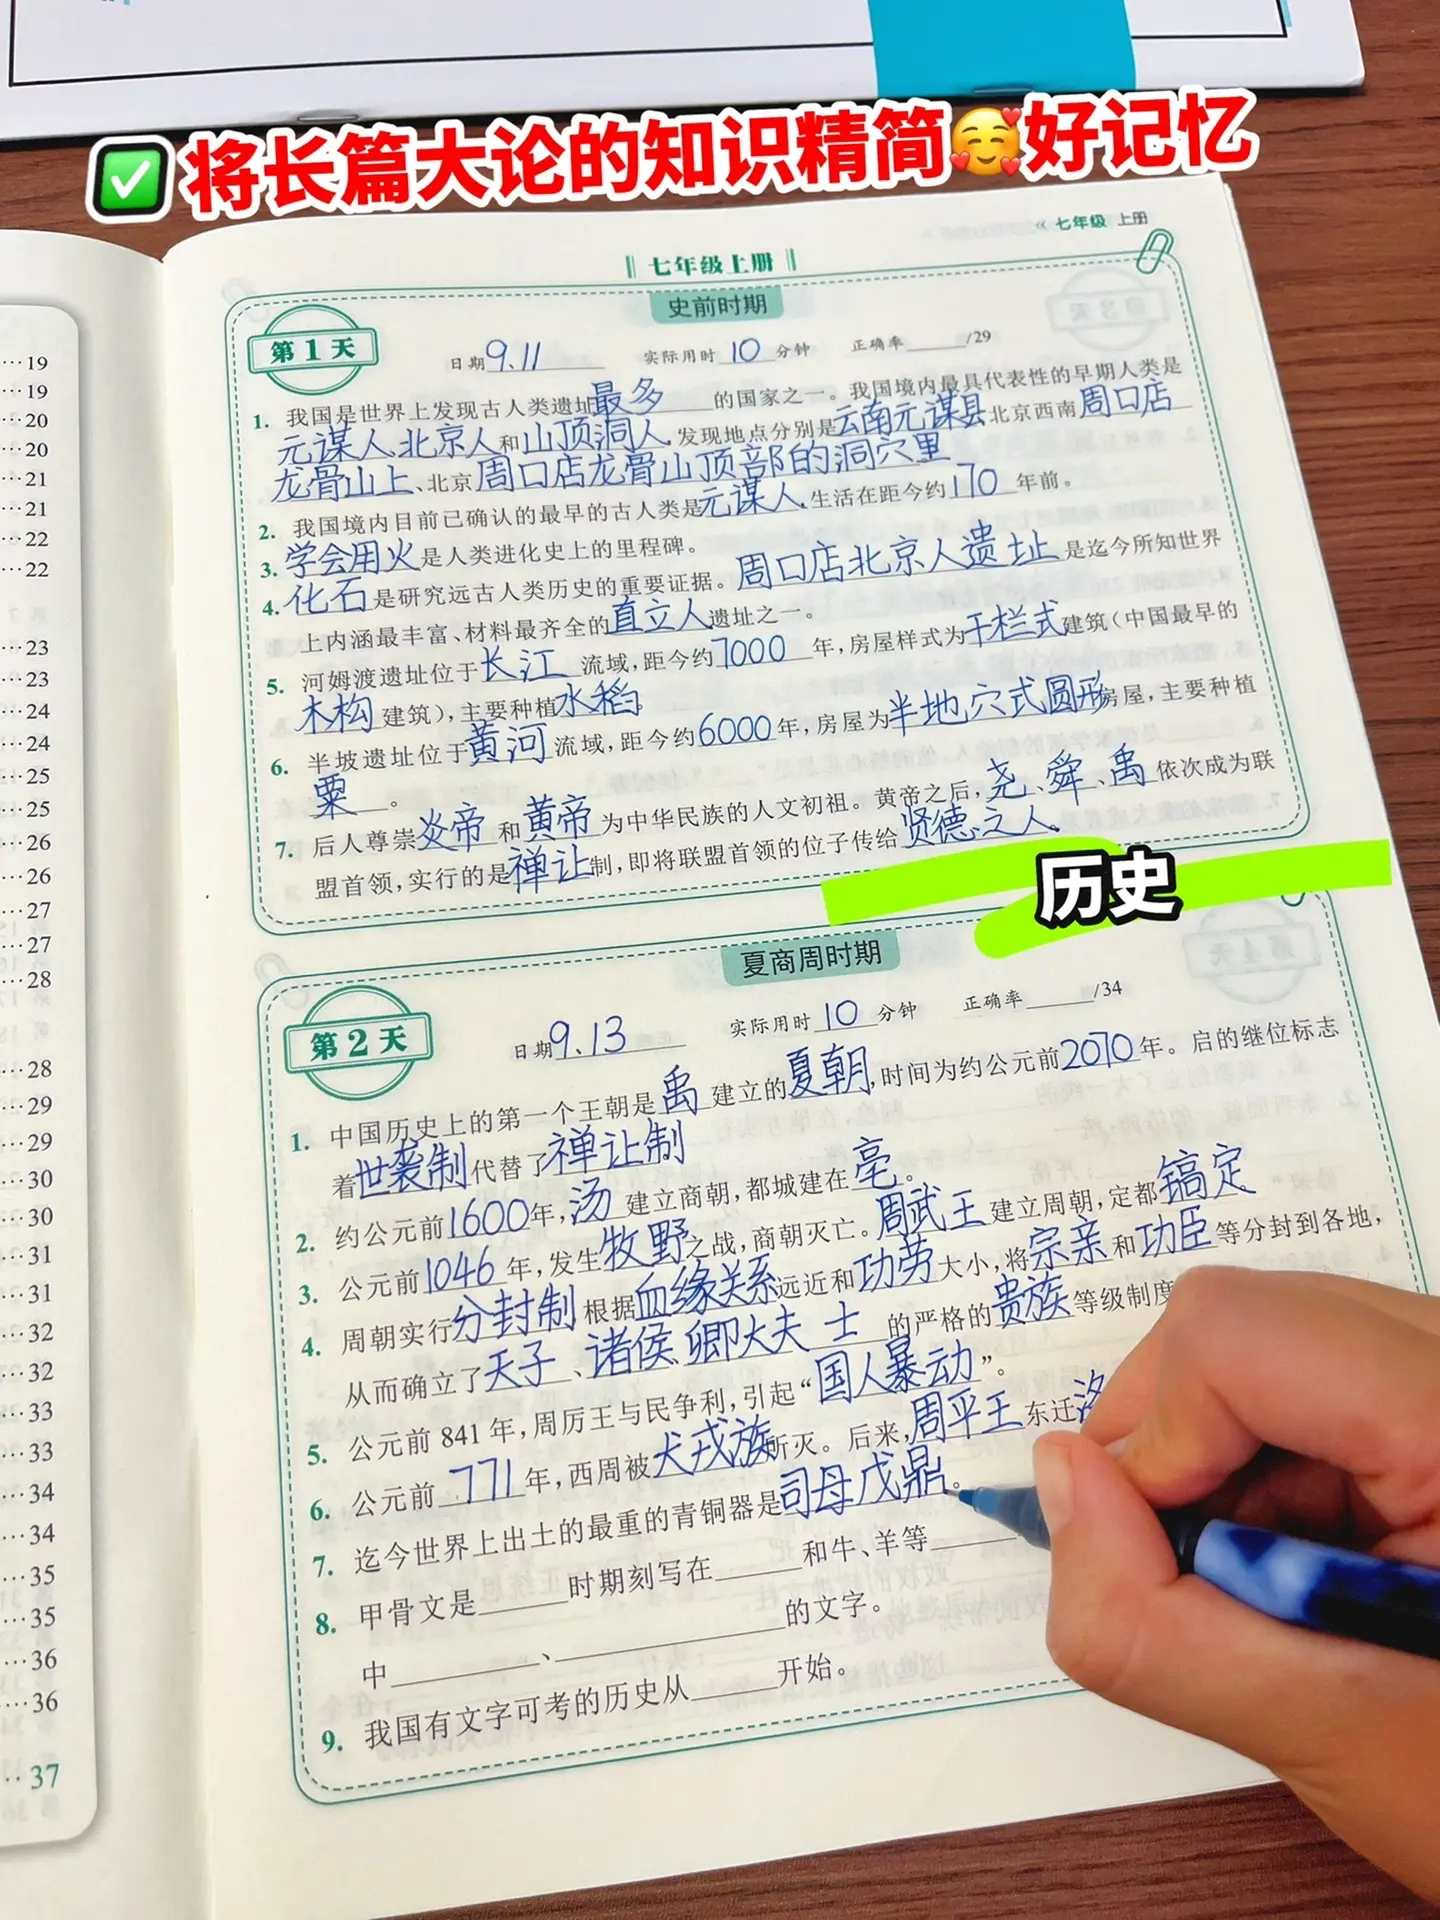 ✅将长篇大论的知识精简🥰好记忆
« 七年级 上册
七年级上册
史前时期
第1天
日期9.11 实际用时10分钟 正确率____/29
1. 我国是世界上发现古人类遗址最多的国家之一。我国境内最具代表性的早期人类是
元谋人、北京人和山顶洞人,发现地点分别是云南元谋县、北京西南周口店
龙骨山上、北京周口店龙骨山顶部的洞穴里
2. 我国境内目前已确认的最早的古人类是元谋人,生活在距今约170年前。
3. 学会用火是人类进化史上的里程碑。
4. 化石是研究远古人类历史的重要证据。周口店北京人遗址是迄今所知世界
上内涵最丰富、材料最齐全的直立人遗址之一。
5. 河姆渡遗址位于长江流域,距今约7000年,房屋样式为干栏式建筑(中国最早的
木构建筑),主要种植水稻
6. 半坡遗址位于黄河流域,距今约6000年,房屋为半地穴式圆形房屋,主要种植
粟。
7. 后人尊崇炎帝和黄帝为中华民族的人文初祖。黄帝之后,尧、舜、禹依次成为联
盟首领,实行的是禅让制,即将联盟首领的位子传给贤德之人.
历史
夏商周时期
第2天
日期9.13 实际用时10分钟 正确率____/34
1. 中国历史上的第一个王朝是禹建立的夏朝,时间为约公元前2070年。启的继位标志
着世袭制代替了禅让制
2. 约公元前1600年,汤建立商朝,都城建在亳。
3. 公元前1046年,发生牧野之战,商朝灭亡。周武王建立周朝,定都镐定
4. 周朝实行分封制根据血缘关系远近和功劳大小,将宗亲和功臣等分封到各地,
从而确立了天子、诸侯、卿大夫 士的严格的贵族等级制度
5. 公元前 841 年,周厉王与民争利,引起“国人暴动”。
6. 公元前771年,西周被犬戎族所灭。后来,周平王东迁洛
7. 迄今世界上出土的最重的青铜器是司母戊鼎。
8. 甲骨文是____时期刻写在____和牛、羊等____
中____、____的文字。
9. 我国有文字可考的历史从____开始。
19
19
20
20
21
21
22
22
23
23
24
24
25
25
26
26
27
27
28
28
29
29
30
30
31
31
32
32
33
33
34
34
35
35
36
36
37